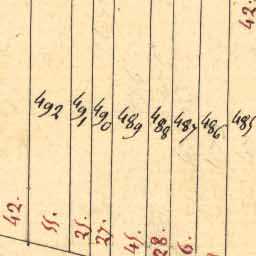 42.
492
491
490
489
488
487
486
485
42.
55.
25.
27.
45.
28.
6.